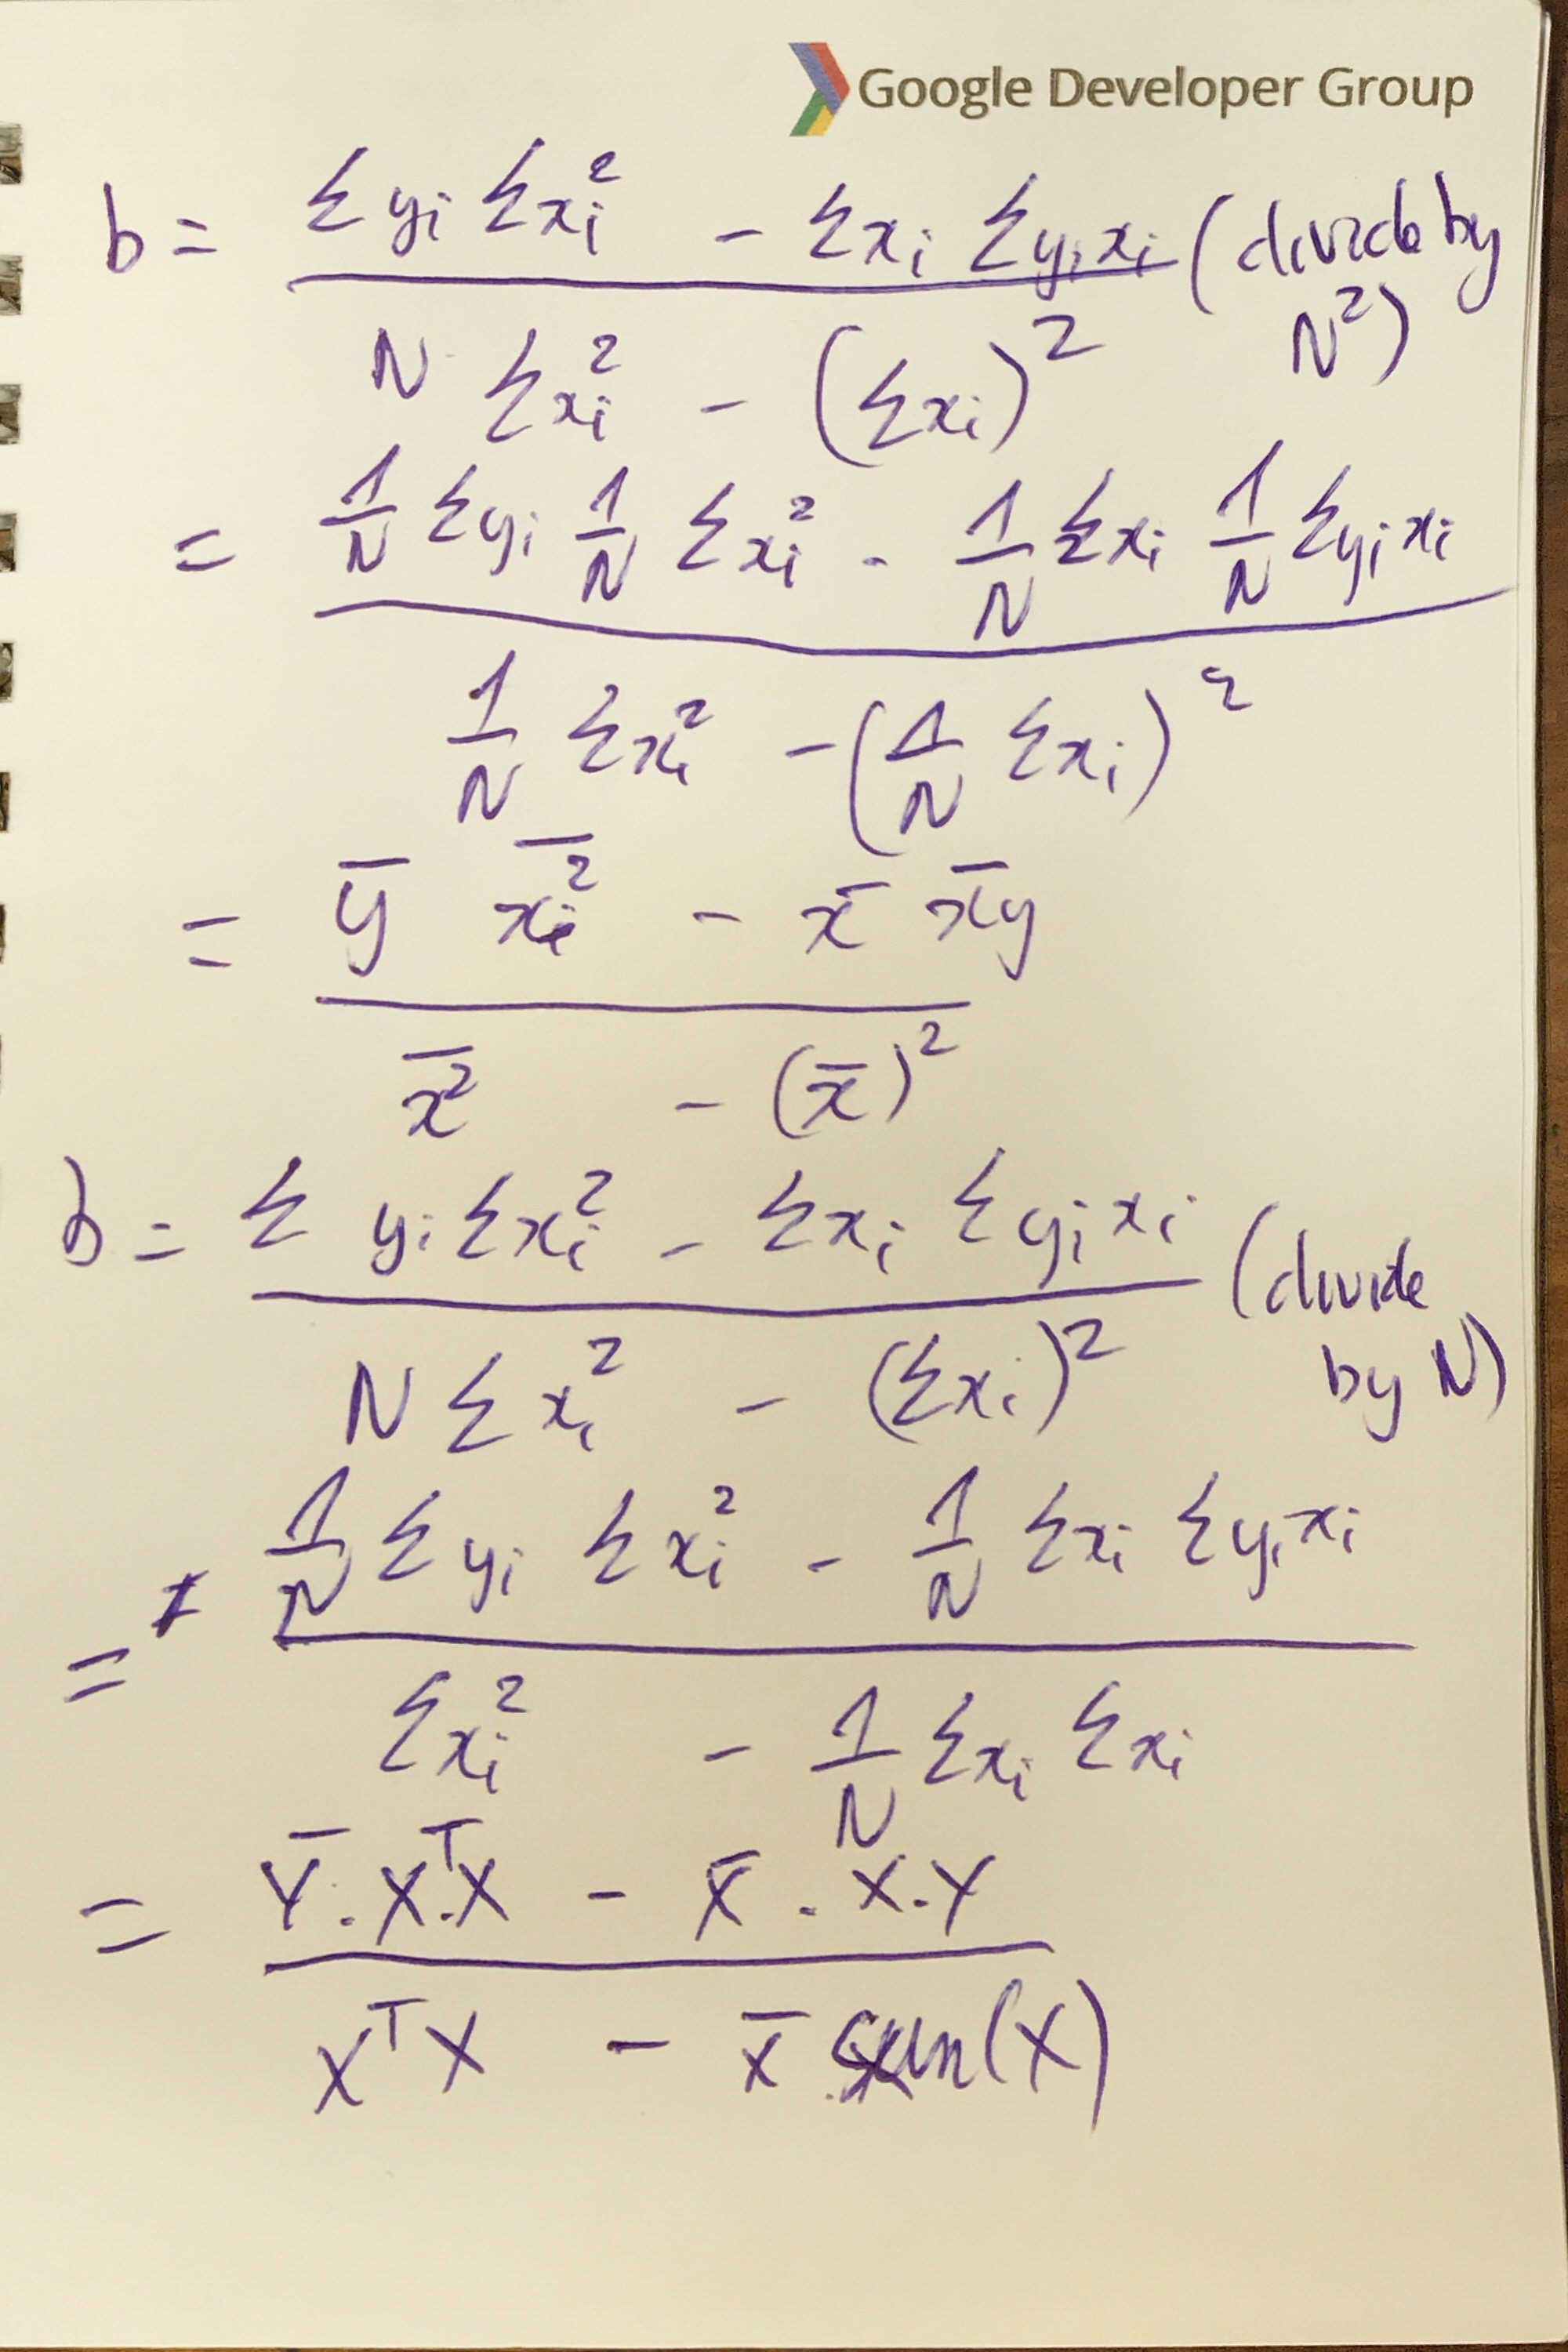 Google Developer Group
b = (Σyi Σxi² - Σxi Σyixi) / (N Σxi² - (Σxi)²) (divide by N²)
= (1/N Σyi 1/N Σxi² - 1/N Σxi 1/N Σyixi) / (1/N Σxi² - (1/N Σxi)²)
= (ȳ x̄i² - x̄ x̄y) / (x̄² - (x̄)²)
b = (Σ yi Σxi² - Σxi Σyixi) / (N Σxi² - (Σxi)²) (divide by N)
= (1/N Σyi Σxi² - 1/N Σxi Σyixi) / (Σxi² - 1/N Σxi Σxi)
= (Ȳ.Xᵀ.X - X̄.X.Y) / (XᵀX - X̄.sum(X))